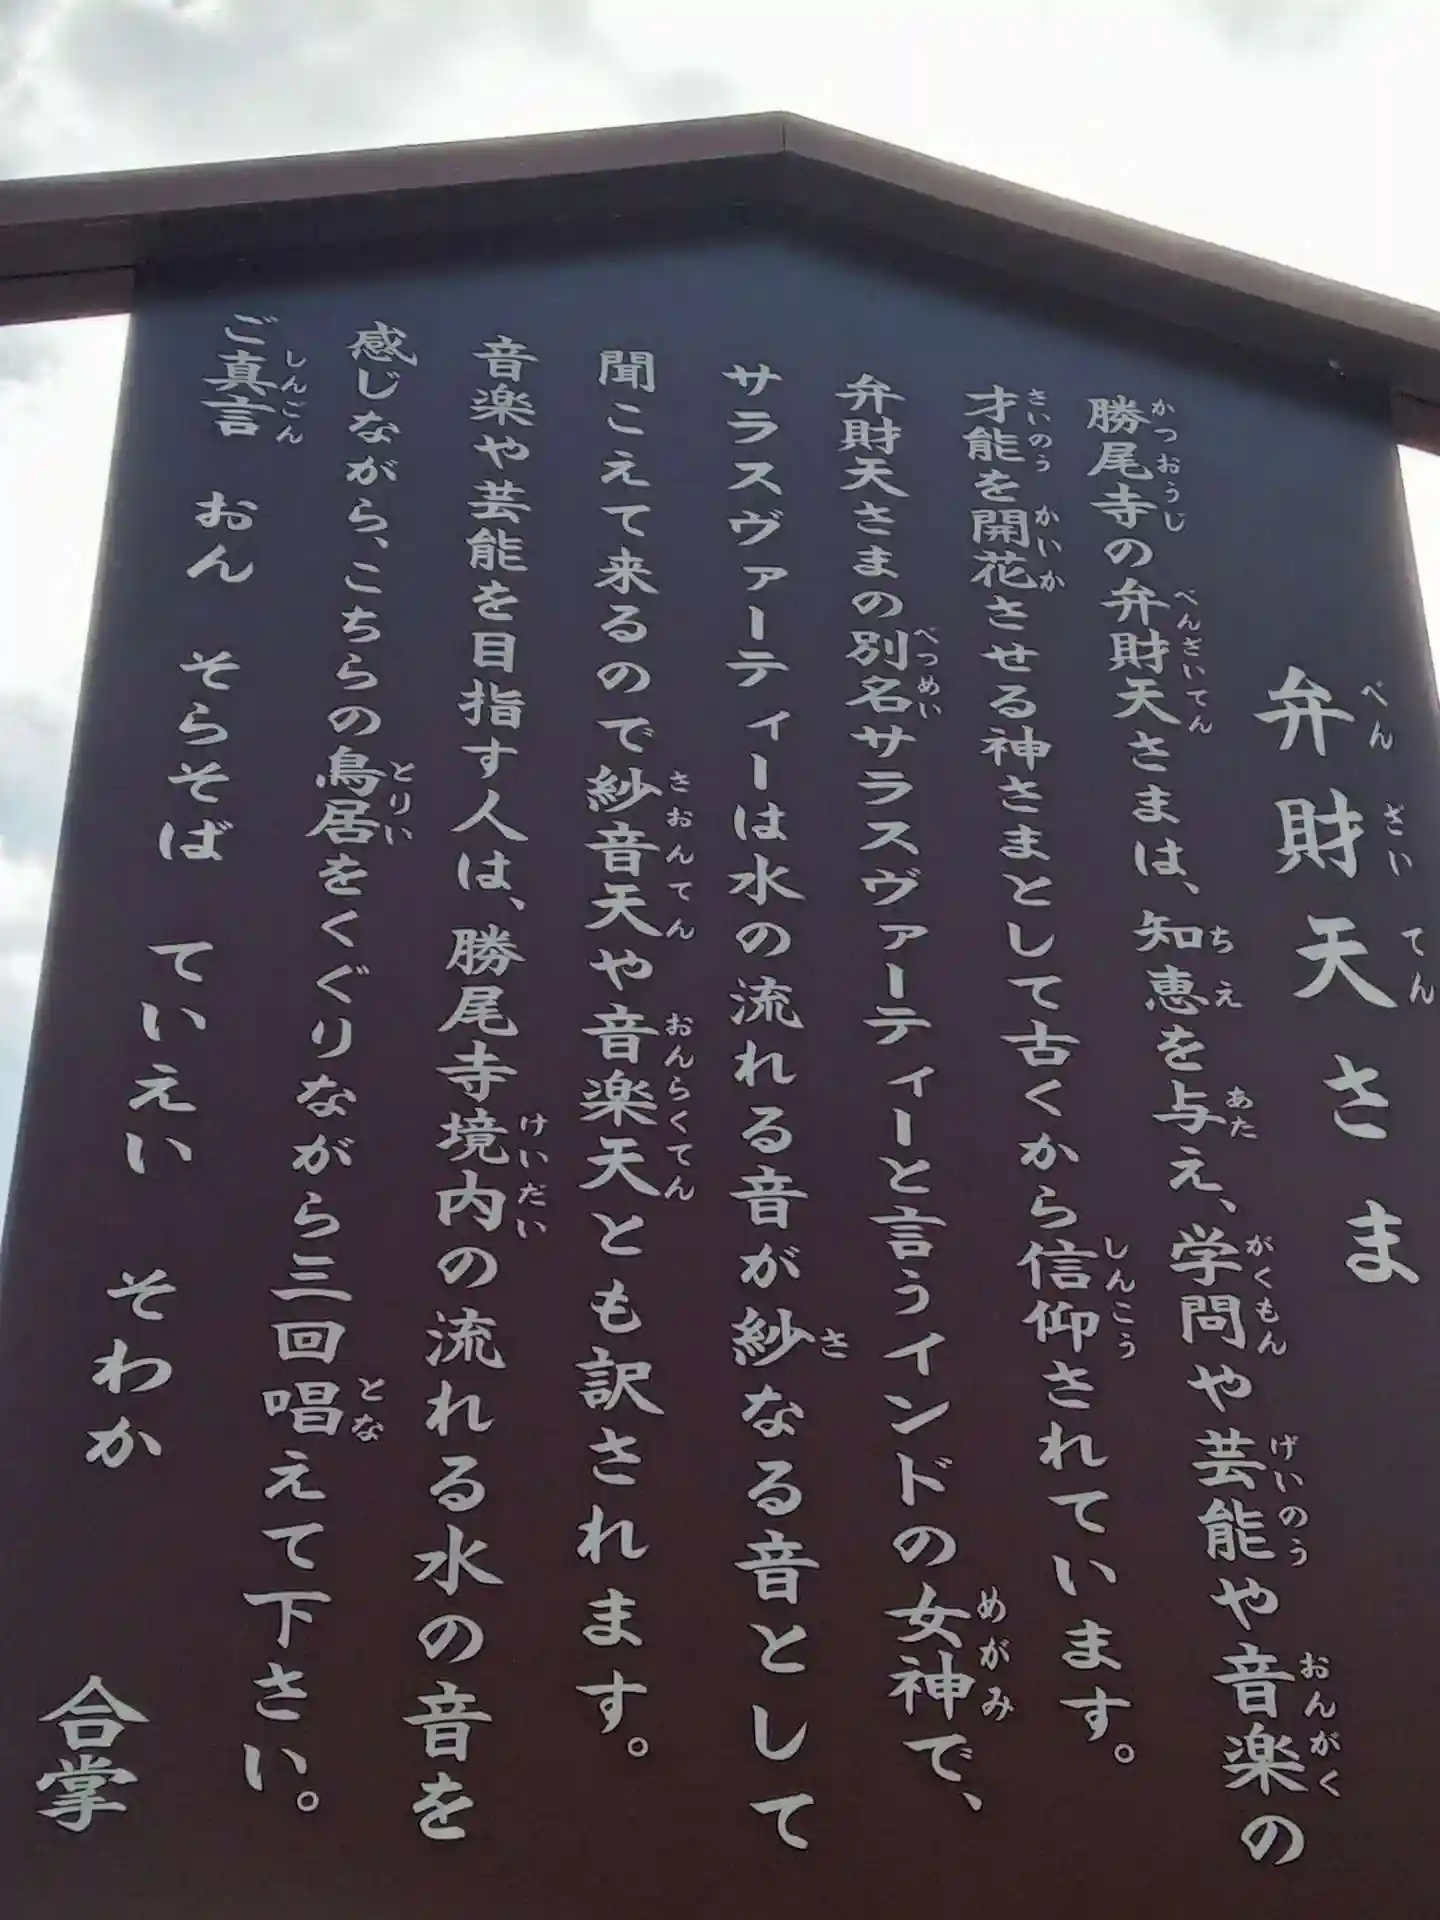 弁財天さま
勝尾寺の弁財天さまは、知恵を与え、学問や芸能や音楽の
才能を開花させる神さまとして古くから信仰されています。
弁財天さまの別名サラスヴァーティーと言うインドの女神で、
サラスヴァーティーは水の流れる音が紗なる音として
聞こえて来るので紗音天や音楽天とも訳されます。
音楽や芸能を目指す人は、勝尾寺境内の流れる水の音を
感じながら、こちらの鳥居をくぐりながら三回唱えて下さい。
ご真言 おん そらそば ていえい そわか 合掌